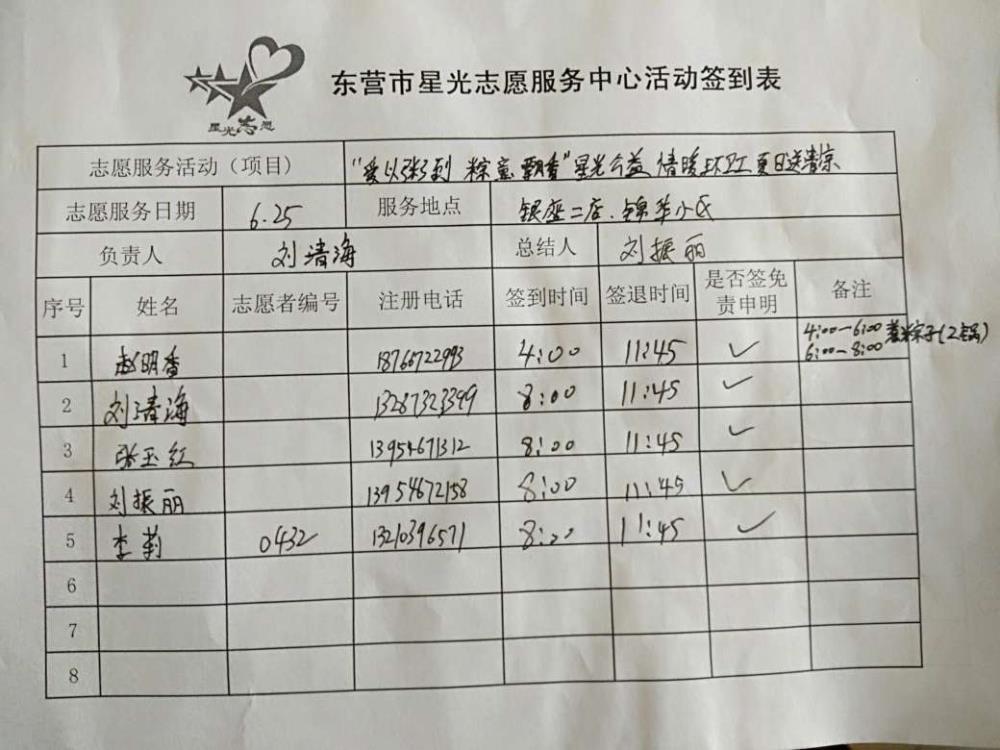 星光志愿
东营市星光志愿服务中心活动签到表
志愿服务活动（项目） "爱以粥到 粽意飘香"星光公益 情暖环卫 夏日送清凉
志愿服务日期 6.25 服务地点 银座二店、锦华小区
负责人 刘清海 总结人 刘振丽
序号 姓名 志愿者编号 注册电话 签到时间 签退时间 是否签免责申明 备注
1 赵明香 18760722993 4:00 11:45 ✓ 4:00-6:00 煮粽子(2锅) 6:00-8:00
2 刘清海 13287323399 8:00 11:45 ✓
3 张玉红 13954671312 8:00 11:45 ✓
4 刘振丽 13954672158 8:00 11:45 ✓
5 李莉 0432 1321396571 8:00 11:45 ✓
6
7
8